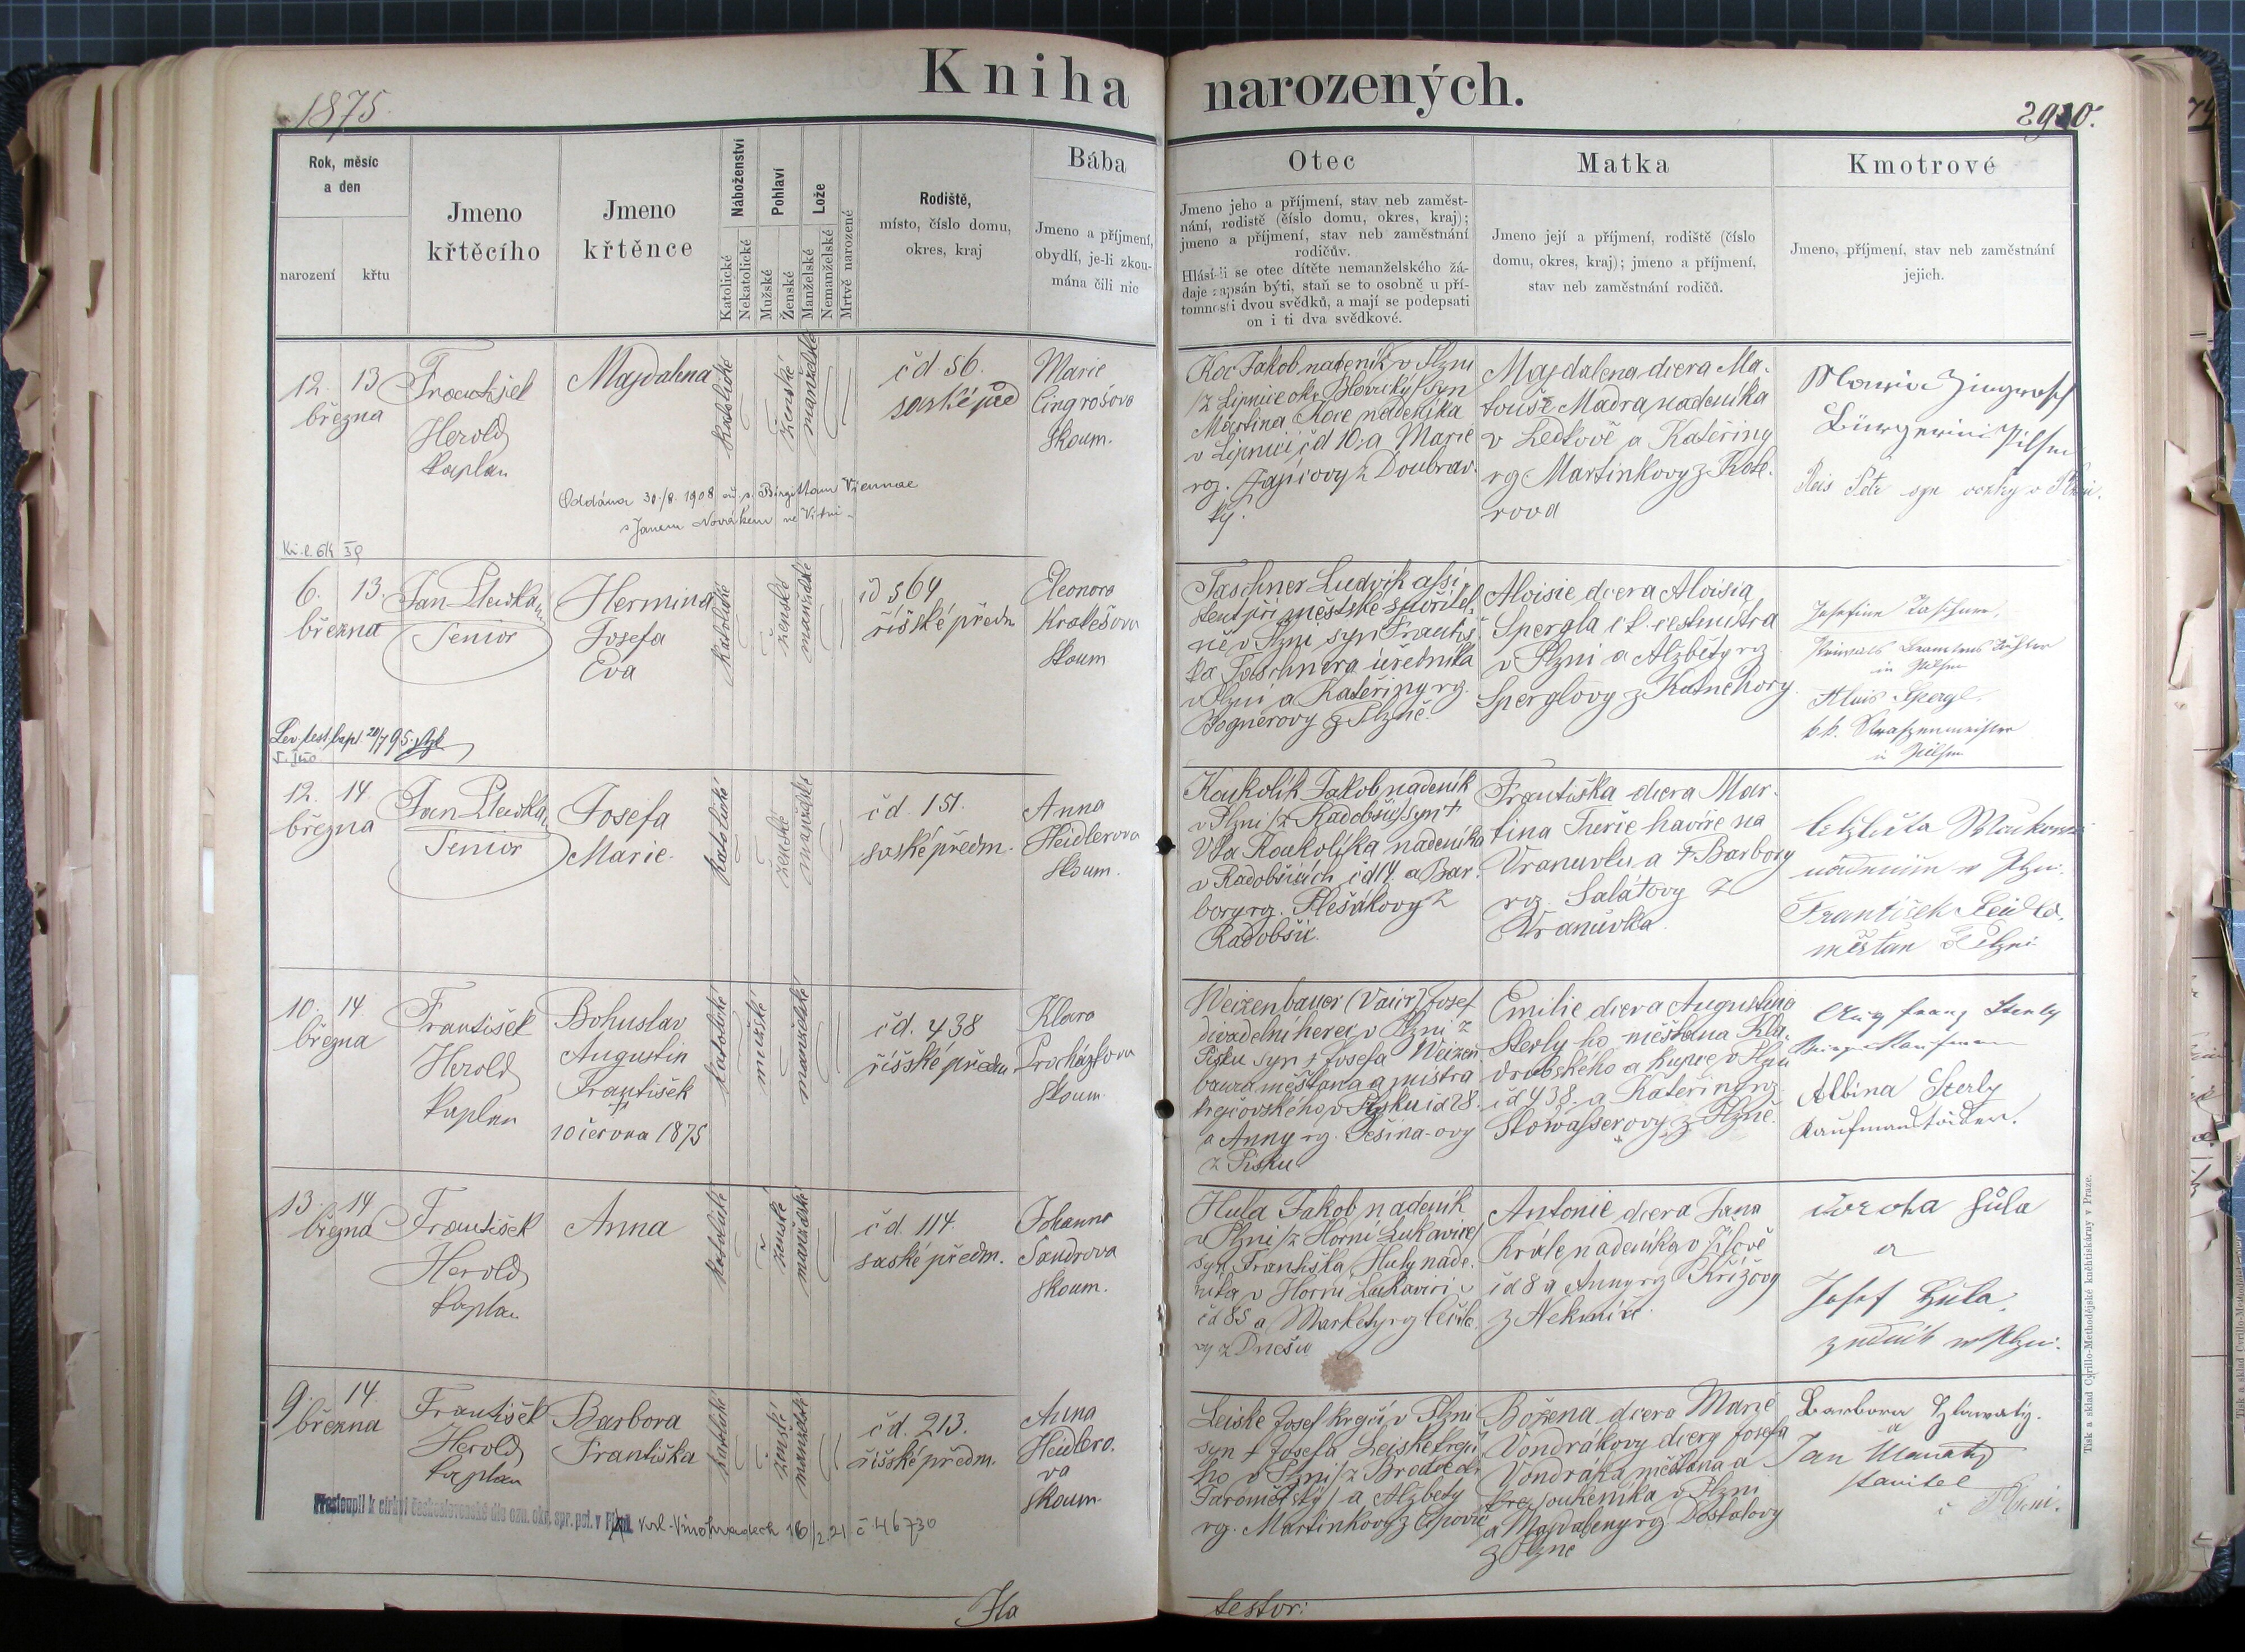 Kniha narozených.
1875.
2910.
Rok, měsíc
a den
narození
křtu
Jmeno
křtěcího
Jmeno
křtěnce
Náboženství
Katolické
Nekatolické
Pohlaví
Mužské
Ženské
Lože
Manželské
Nemanželské
Mrtvě narozené
Rodiště,
místo, číslo domu,
okres, kraj
Bába
Jmeno a příjmení,
obydlí, je-li zkou-
mána čili nic
Otec
Jmeno jeho a příjmení, stav neb zaměst-
nání, rodiště (číslo domu, okres, kraj);
jmeno a příjmení, stav neb zaměstnání
rodičův.
Hlásí-li se otec dítěte nemanželského žá-
daje zapsán býti, staň se to osobně u pří-
tomnosti dvou svědků, a mají se podepsati
on i ti dva svědkové.
Matka
Jmeno její a příjmení, rodiště (číslo
domu, okres, kraj); jmeno a příjmení,
stav neb zaměstnání rodičů.
Kmotrové
Jmeno, příjmení, stav neb zaměstnání
jejich.
12. 13
března
František
Herold
kaplan
Majdalena
katolické
ženské
manželské
čd 56.
saské pře
Marie
Cingrošova
skoum.
Oddána 30./8. 1908 s. Birgittam Viennae
s Janem Novákem ve Vídni
Koc Jakob nadeník v Plzni
/z Lipnice okr.
Martina Koce nadeníka
v Lipnici čd 10. a Marie
rg. Zajícovy z Doubrav-
ky.
Majdalena dcera Ma-
touše Madra nadeníka
v Ledkově a Kateřiny
rg Martinkovy z Kote-
rova
Pilsen
Petr
6. 13.
března
Jan
Senior
Hermina
Josefa
Eva
katolické
ženské
manželské
čd 564
říšské předm
Eleonora
Krakešova
skoum
Lev. test. bapt 20/7 95.
Taschner Ludvik assi-
stent při městské spořitel-
ně v Plzni syn Františ-
ka Taschnera úředníka
v Plzni a Kateřiny rg.
z Plzně.
Aloisie dcera Aloisia
Spergla c.k. cestmistra
v Plzni a Alžběty rg
Sperglovy z Kutnehory.
Josefine Taschner,
in Pilsen
Aluis Spergl.
k.k. Strassenmeister
in Pilsen
12. 14.
března
Jan
Senior
Josefa
Marie.
katolické
ženské
manželské
čd. 151.
saské předm.
Anna
Heidlerova
skoum.
Koukolík Jakob nadeník
v Plzni /z Radobšic/ syn †
Víta Koukolíka nadeníka
v Radobšicích čd 14. a Bar-
bory rg. Plešákovy z
Radobšic.
Františka dcera Mar-
tina havíře na
Vranuvku a † Barbory
rg. Salátovy z
Vranůvka.
v Plzni.
František
měštan v Plzni
10. 14.
března
František
Herold
kaplan
Bohuslav
Augustin
František
†
10 června 1875
katolické
mužské
manželské
čd. 438
říšské předm
Klara
Procházkova
skoum
Weizenbauer (Vaicr) Josef
divadelní herec v Plzni z
Písku syn † Josefa Weizen-
baura měštana a mistra
krejčovského v Písku čd 28.
a Anny rg. Tešina-ovy
z Písku
Emilie dcera Augustina
Sterly ho měštana Kla-
drubského a kupce v Plzni
čd 438. a Kateřiny rg.
Stowasserovy z Plzně.
Aug Franz Sterly
Albina Sterly
Kaufmanstochter.
13. 14
března
František
Herold
kaplan
Anna
katolické
ženské
manželské
čd. 114.
saské předm.
Johanna
Sandrova
skoum.
Hula Jakob nadeník
v Plzni /z Horní Lukavice/
syn Františka Huly nade-
níka v Horní Lukavici
čd 85 a Markety rg
vy z Dnešic
Antonie dcera Jana
Krále nadeníka v Žilově
čd 8 a Anny rg Křížovy
z Nekmíře.
Dorota Hůla
a
Josef Hůla.
v Plzni.
9. 14.
března
František
Herold
kaplan
Barbora
Františka
katolické
ženské
manželské
čd. 213.
říšské předm.
Anna
Heidlero-
va
skoum.
Přestoupil k církvi československé dle ozn. okr. spr. pol. v
Král. Vinohradech 16/2.21 č 46730
Leiske Josef krejčí v Plzni
syn † Josefa Leiske krejčí-
ho v Plzni /z Brodce
Jaroměřský/ a Alžběty
rg. Martinkovy z
Božena dcera Marie
Vondrákovy dcery Josefa
Vondráka měštana a
soukeníka v Plzni
a Majdaleny rg Dostalovy
z Plzně
Barbora Hlawaty.
a
Jan
stavitel
v Plzni.
testor:
Tisk a sklad Cyrillo-Methodějské knihtiskárny v Praze.